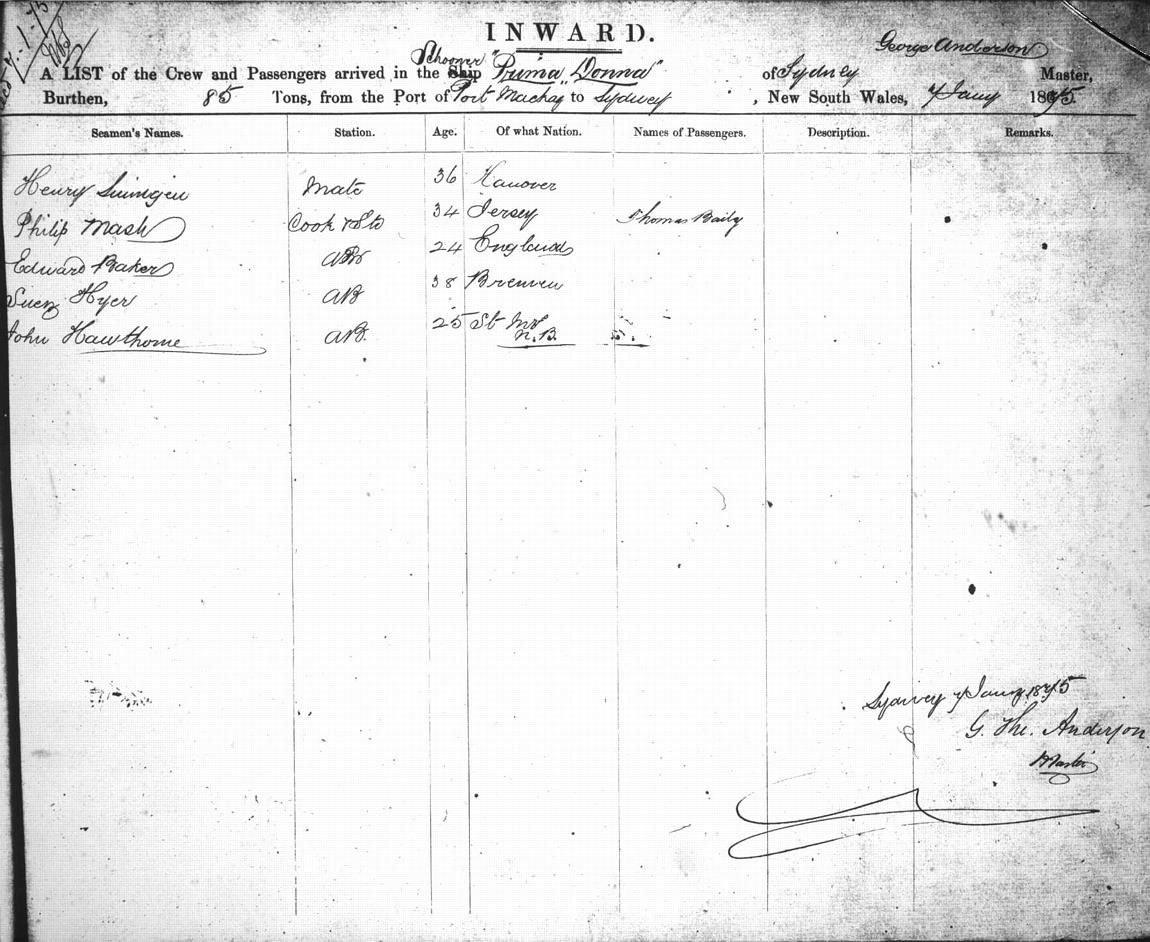 INWARD.
George Anderson
Schooner
A LIST of the Crew and Passengers arrived in the Ship "Prima Donna" of Sydney Master,
Burthen, 85 Tons, from the Port of Port Mackay to Sydney, New South Wales, 7 Jany 1875.
Seamen's Names. Station. Age. Of what Nation. Names of Passengers. Description. Remarks.
Henry Mate 36 Hanover
Philip Mash Cook & Std 34 Jersey Thomas Baily
Edward Baker AB 24 England
Hyer AB 38 Bremen
John Hawthorne AB. 25 St
N.B. 5.
Sydney 7 Jany 1875
G. Anderson
Master